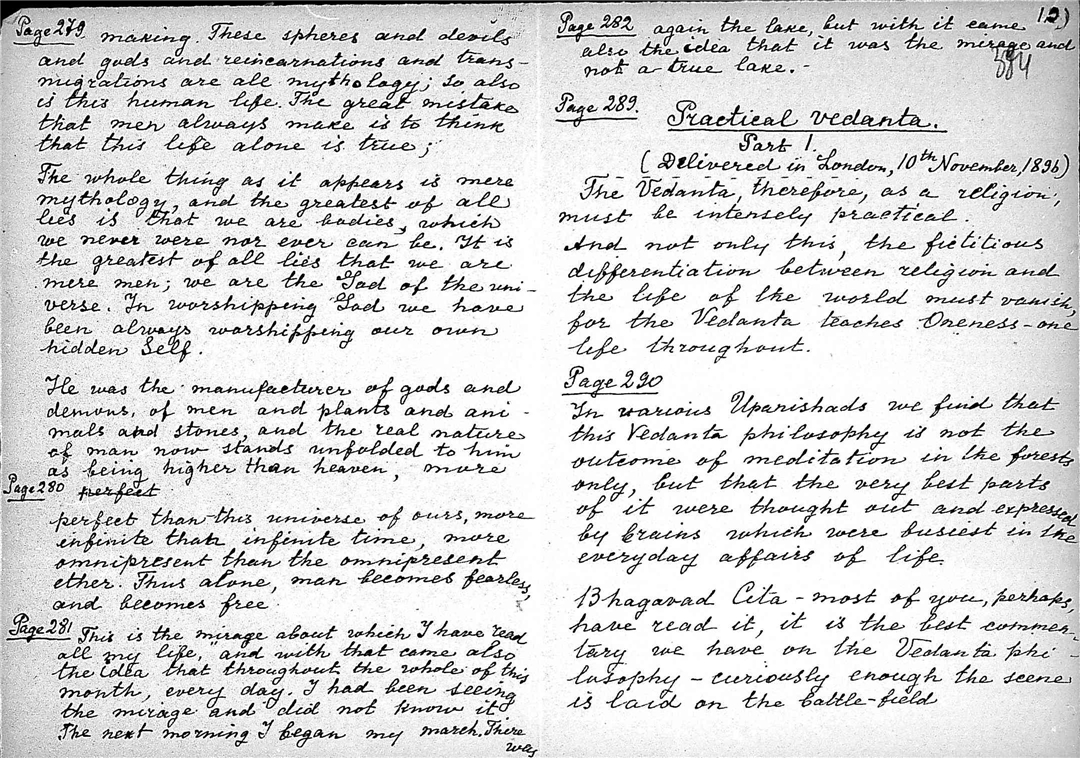 Page 279. making. These spheres and devils
and gods and reincarnations and trans-
migrations are all mythology; so also
is this human life. The great mistake
that men always make is to think
that this life alone is true;
The whole thing as it appears is mere
mythology, and the greatest of all
lies is that we are bodies, which
we never were nor ever can be. It is
the greatest of all lies that we are
mere men; we are the God of the uni-
verse. In worshipping God we have
been always worshipping our own
hidden Self.
He was the manufacturer of gods and
demons, of men and plants and ani-
mals and stones, and the real nature
of man now stands unfolded to him
as being higher than heaven, more
Page 280 perfect
perfect than this universe of ours, more
infinite than infinite time, more
omnipresent than the omnipresent
ether. Thus alone, man becomes fearless,
and becomes free.
Page 281 This is the mirage about which I have read
all my life," and with that came also
the idea that throughout the whole of this
month, every day. I had been seeing
the mirage and did not know it.
The next morning I began my march. There
was
12)
Page 282 again the lake, but with it came
also the idea that it was the mirage and
not a true lake. -
384
Page 289. Practical Vedanta.
Part 1.
(Delivered in London, 10th November, 1896)
The Vedanta, therefore, as a religion,
must be intensely practical.
And not only this, the fictitious
differentiation between religion and
the life of the world must vanish,
for the Vedanta teaches Oneness - one
life throughout.
Page 290
In various Upanishads we find that
this Vedanta philosophy is not the
outcome of meditation in the forests
only, but that the very best parts
of it were thought out and expressed
by brains which were busiest in the
everyday affairs of life.
Bhagavad Cita - most of you, perhaps,
have read it, it is the best commen-
tary we have on the Vedanta phi-
losophy - curiously enough the scene
is laid on the battle-field